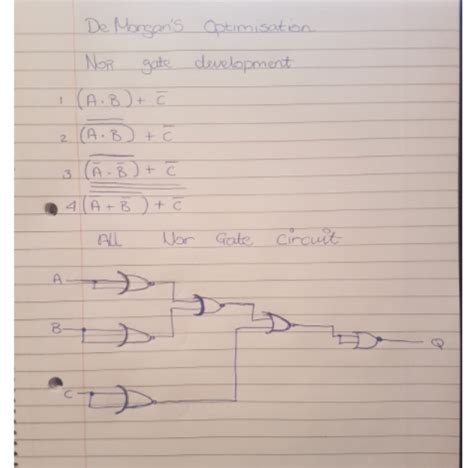 De Morgan's Optimisation
Nor gate development
1 (A · B) + C̅
2 (A̅ ·̅ B̅) + C̅
3 (A̅ · B̅) + C̅
4 (A̅ + B̅) + C̅
All Nor Gate Circuit
A
B
C
Q